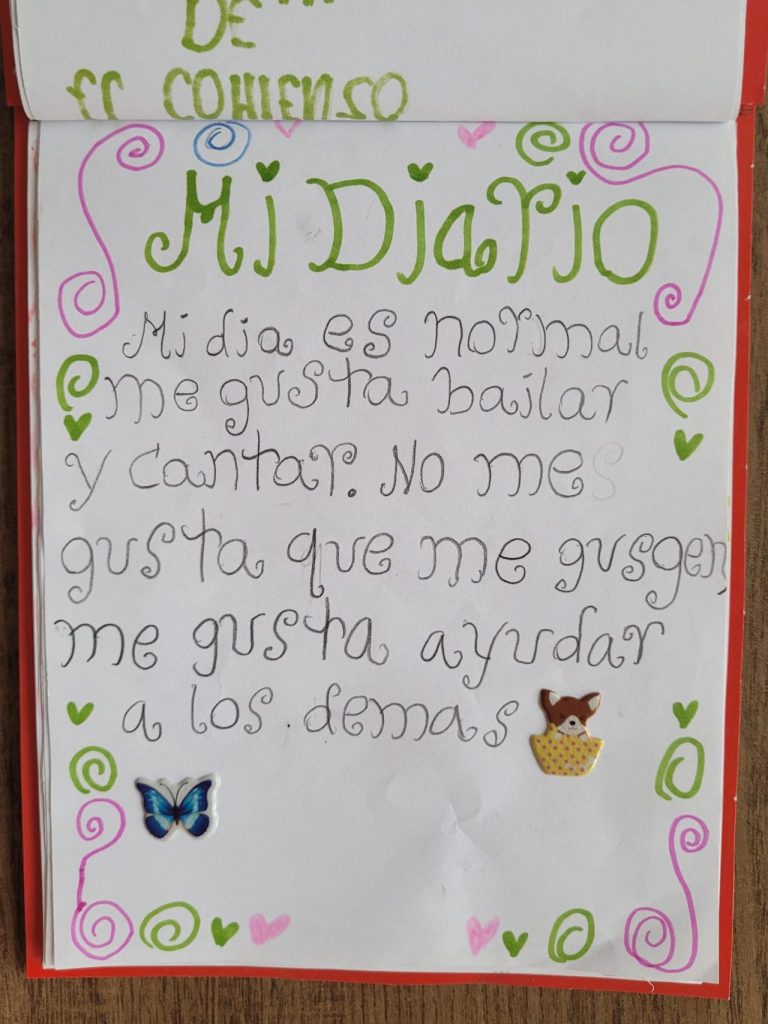 DE
EL COMIENSO
Mi Diario
Mi dia es normal
me gusta bailar
y cantar. No me
gusta que me gusgen
me gusta ayudar
a los demas